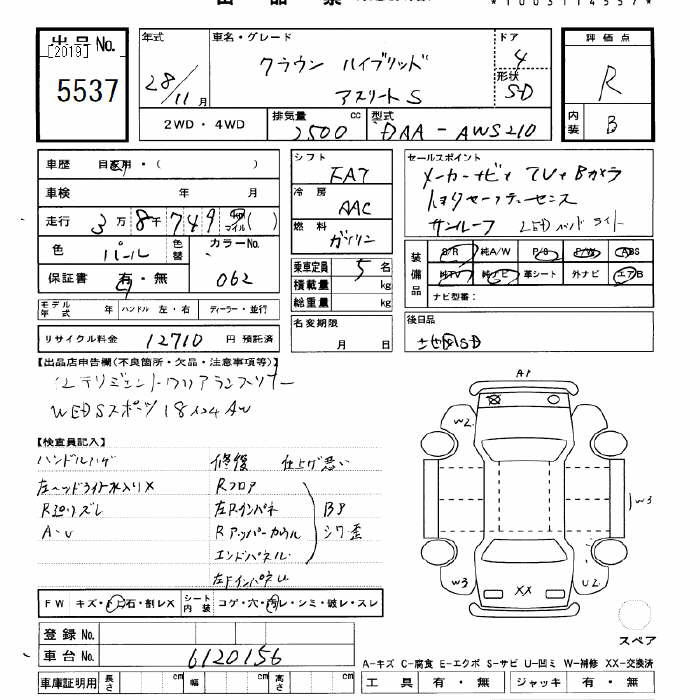 出品No.
[2019]
5537
年式
28/11月
車名・グレード
クラウン ハイブリッド
アスリートS
ドア
4
形状
SD
評価点
R
内装
B
2WD・4WD
排気量
2500 cc
型式
DAA-AWS210
車歴 自家用・( )
車検 年 月
走行 3万8千749 km マイル ( )
色 パール 色替 カラーNo.
保証書 有・無 062
モデル年式 年 ハンドル 左・右 ディーラー・並行
リサイクル料金 12710 円 預託済
シフト
FAT
冷房
AAC
燃料
ガソリン
乗車定員 5 名
積載量 kg
総重量 kg
名変期限
月 日
セールスポイント
メーカーナビ TV Bカメラ
トヨタセーフティーセンス
サンルーフ LEDヘッドライト
装備品
S/R 純A/W P/S P/W ABS
純TV 純ナビ 革シート 外ナビ エアB
ナビ型番:
後日品
【出品店申告欄(不良箇所・欠品・注意事項等)】
インテリジェントクリアランスソナー
WEDSスポーツ18インチAW
【検査員記入】
ハンドルハゲ
左ヘッドライト水入りX
R廻りズレ
A・U
修復 仕上げ悪い
Rフロア
左Rインパネ
Rアッパーカウル
エンドパネル
左Fインパネ
BP
シワ歪
A1
W2
W3
W3
U2
XX
FW キズ・トビ石・割レX
シート内装 コゲ・穴・汚レ・シミ・破レ・スレ
登録No.
車台No. 6120156
車庫証明用 長さ cm 幅 cm 高さ cm
スペア
A-キズ C-腐食 E-エクボ S-サビ U-凹ミ W-補修 XX-交換済
工具 有・無 ジャッキ 有・無